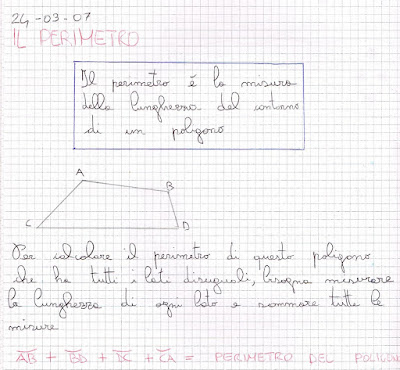 24-03-07
IL PERIMETRO
Il perimetro é la misura
della lunghezza del contorno
di un poligono
A
B
C
D
Per calcolare il perimetro di questo poligono
che ha tutti i lati disuguali, bisogna misurare
la lunghezza di ogni lato e sommare tutte le
misure
AB + BD + DC + CA = PERIMETRO DEL POLIGON